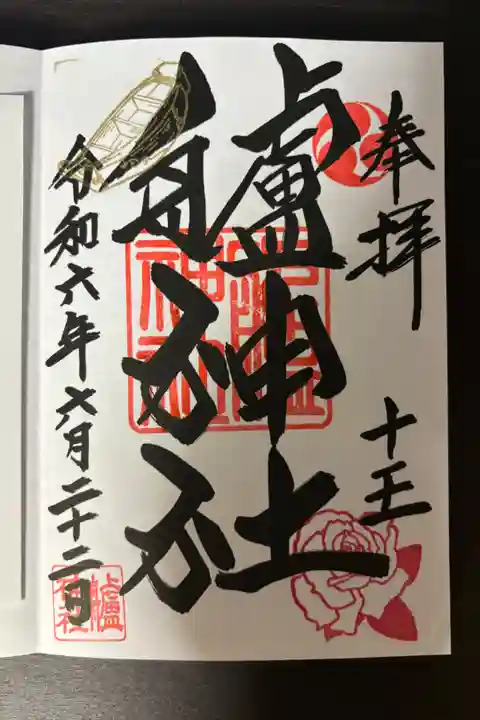 奉拝
十王
艫神社
艫
神社
令和六年六月二十二日
艫
神社